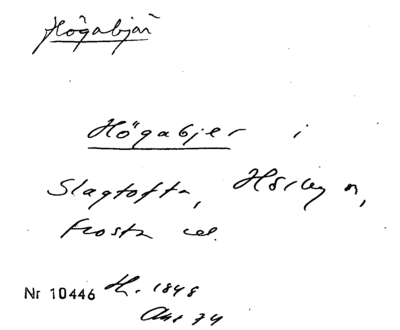 Högabjär
Högabjer i
Slagtofta, Hörby sn,
Frosta
Nr 10446 H. 1848